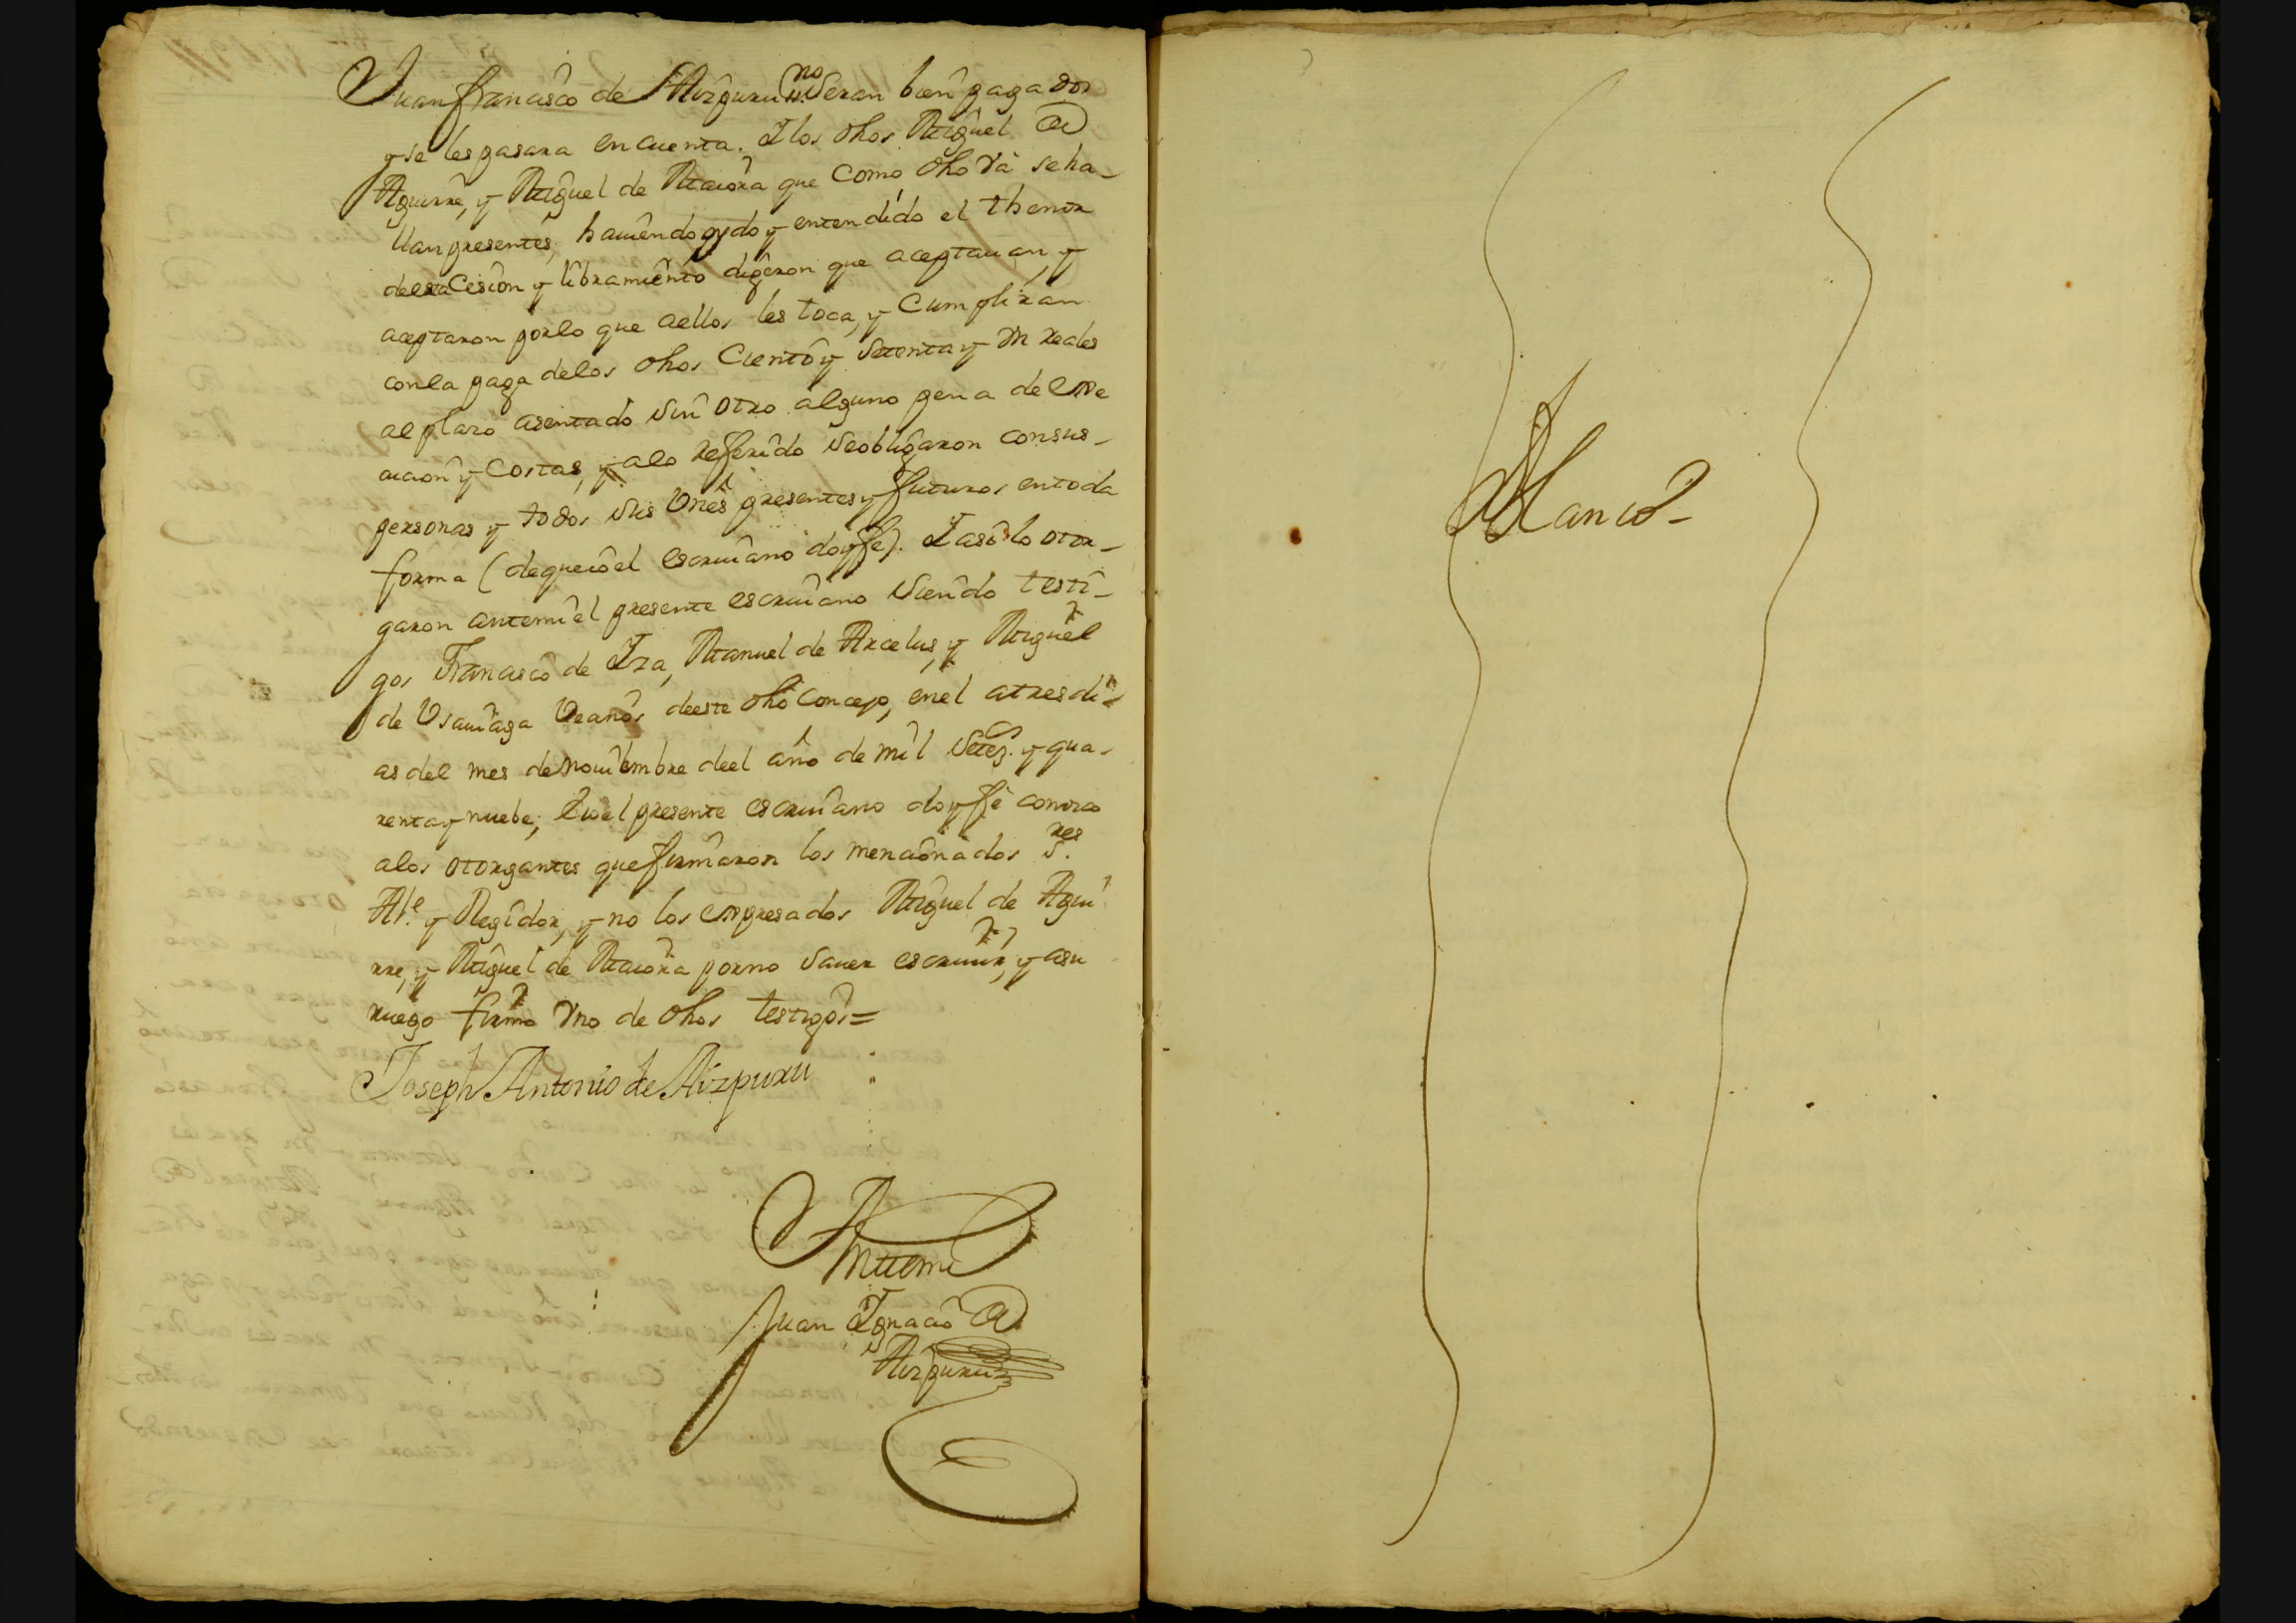 Juan francisco de Aizpuru no seran bien pagados
y se les pasara en cuenta. I los dhos Miguel de
Aguirre, y Miguel de Maiora que como dho va se ha-
llan presentes, hauiendo oydo y entendido el thenor
de esta Cesion y libramiento digeron que aceptauan, y
aceptaron por lo que aellos les toca, y Cumpliran
con la paga delos dhos Ciento y Setenta y Vn reales
al plazo asentado sin otro alguno pena de exe
cucion y Costas, y alo referido se obligaron consus-
personas y todos sus Vnes presentes y futuros entoda
forma (de que io el escriuano doy fe). I asi lo otor-
garon antemi el presente escriuano siendo testi-
gos Francisco de Iza, Manuel de Arcelus, y Miguel
de Vsauiaga Vecinos deeste dho Concejo, en el a tres di-
as del mes de Nouiembre deel año de mil Setez. y qua-
renta y nuebe; E io el presente escriuano doy fe conozco
alos otorgantes que firmaron los mencionados S.res
Al.e y Regidor, y no los expresados Miguel de Agui
rre, y Miguel de Maiora por no sauer escriuir, y asu
ruego firmo Vno de dhos testigos=
Joseph Antonio de Aizpuru
Antemi
Juan Ignacio de
Aizpuru
Blanco-